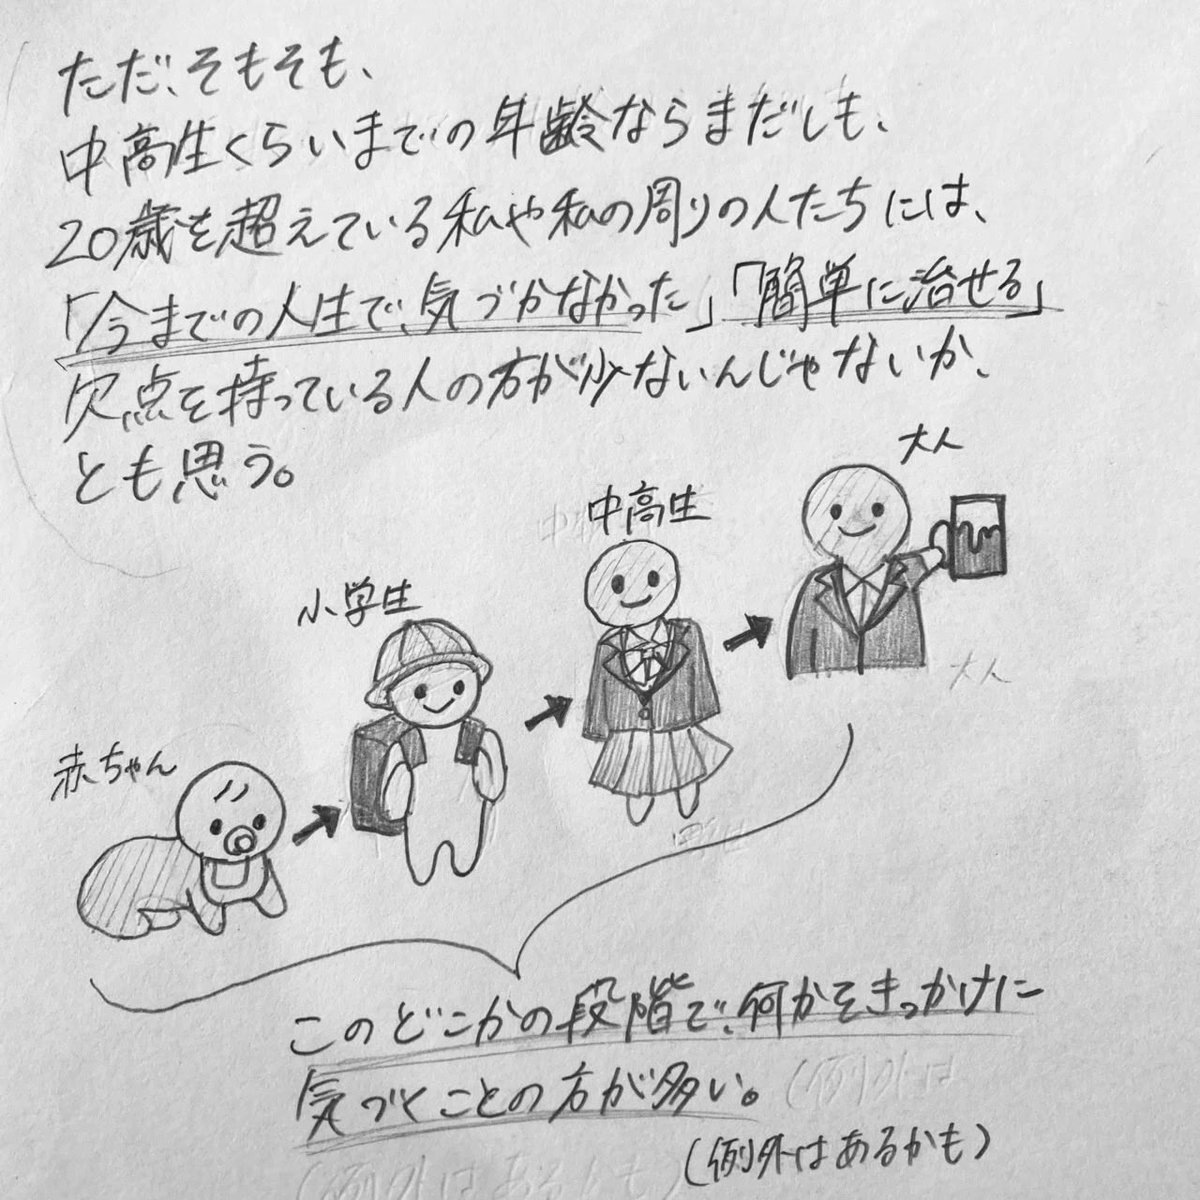 ただ、そもそも、
中高生くらいまでの年齢ならまだしも、
20歳を超えている私や私の周りの人たちには、
「今までの人生で、気づかなかった」「簡単に治せる」
欠点を持っている人の方が少ないんじゃないか、
とも思う。
大人
中高生
小学生
赤ちゃん
大人
このどこかの段階で、何かをきっかけに
気づくことの方が多い。
(例外は
(例外はあるかも)
(例外はあるかも)